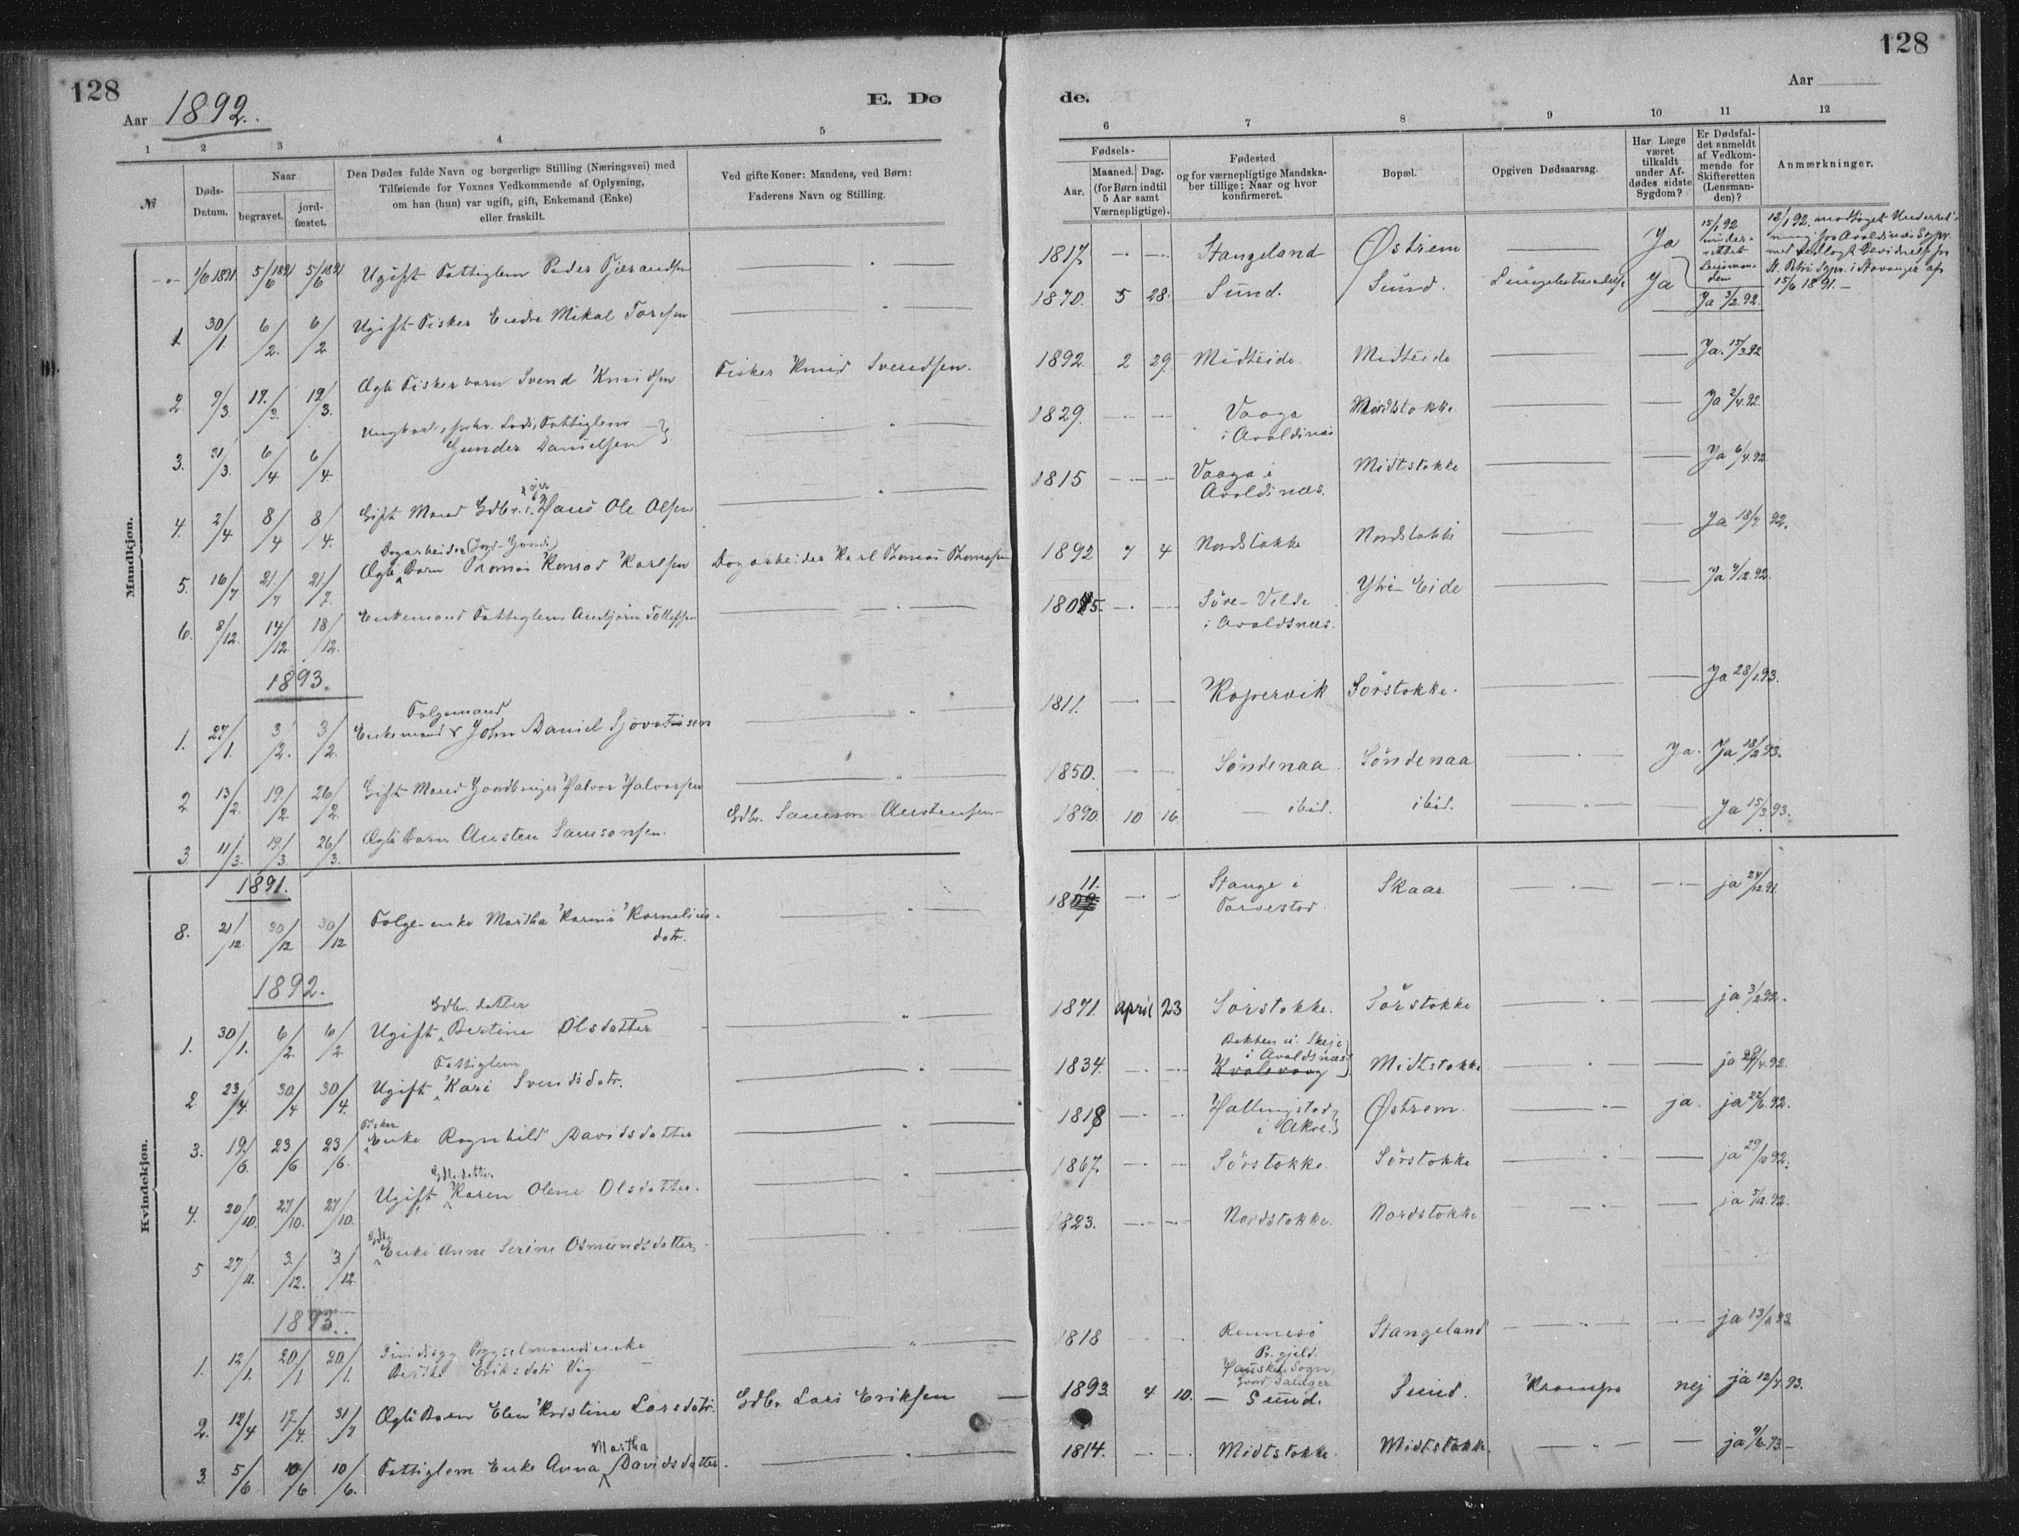 128
128
Aar 1892.
E. Dø
de.
Aar
1
2
3
4
5
6
7
8
9
10
11
12
№
Døds-
Datum.
Naar
begravet.
jord-
fæstet.
Den Dødes fulde Navn og borgerlige Stilling (Næringsvei) med
Tilføiende for Voxnes Vedkommende af Oplysning,
om han (hun) var ugift, gift, Enkemand (Enke)
eller fraskilt.
Ved gifte Koner: Mandens, ved Børn:
Faderens Navn og Stilling.
Fødsels-
Aar.
Maaned. Dag.
(for Børn indtil
5 Aar samt
Værnepligtige).
Fødested
og for værnepligtige Mandska-
ber tillige: Naar og hvor
konfirmeret.
Bopæl.
Opgiven Dødsaarsag.
Har Læge
været
tilkaldt
under Af-
dødes sidste
Sygdom?
Er Dødsfal-
det anmeldt
af Vedkom-
mende for
Skifteretten
(Lensman-
den)?
Anmærkninger.
Mandkjøn.
1/6 1891 5/6 1891 5/6 1891 Ugift Fattiglem Peder — " — 1817 — — Stangeland Østrem — Ja 15/1 92 under-rettet Lensman-den 12/1 92. modtaget
15/6 1891. —
1. 30/1 6/2. 6/2 Ugift Fisker Endre Mikal Toresen — " — 1870. 5 28. Sund. Sund. Ja Ja 3/2 92.
2. 9/3 19./3. 19/3. Ægte Fisker barn Svend Knudsen Fisker Knud Svendsen. 1892 2 29 Midteide Midteide — — Ja 15/3 92
3. 31/3. 6/4 6/4 Fattiglem
Gunder Danielsen — " — 1829. — — Vaaga
i Avaldsnæs Midtstokke — — Ja 2/4 92.
4. 2/4 8/4 8/4. Gift Mand Gdbr. Hans Ole Olsen — " — 1815 — — Vaaga i
Avaldsnæs. Midtstokke — — Ja 6/4 92
5. 16/7 21./7 21/7. Dagarbeider
Ægte Barn Thomas Konrad Karlsen Dagarbeider Karl Thomas Thomasen 1892 7 4 Nordstokke Nordstokke — — Ja 18/7 92.
6. 8/12. 14/12. 18/12. Enkemand Fattiglem Tollefsen — " — 1805. — — Søre-Velde
i Avaldsnæs. Ytre-Eide — — Ja 9/12 92.
1893.
1. 27/1. 3/2. 3/2. Folgemand
Enkemand John Daniel — " — 1811. — — Kopervik Sørstokke. — — Ja 28/1 93.
2 13/2. 19/2. 26/2. Gift Mand Gaardbruger Halvor Halvorsen — " — 1850. — — Søndenaa Søndenaa — " — Ja. Ja 18/2 93.
3. 11/3. 19/3. 26/3. Ægte Barn Austen Samsonsen. Gdbr. Samson Austensen 1890. 10 16 — ibid. ibid. — " — Ja 15/3 93.
Kvindekjøn.
1891.
8. 21/12 30/12 30/12 Folge-enke Martha Karine Kornelius-
datr. — " — 1811. — — Stange i
Torvestad. Skaar — — ja 24/12 91.
1892.
1. 30/1. 6/2. 6/2. Gdbr. datter
Ugift Bertine Olsdatter — " — 1871. april 23 Sørstokke. Sørstokke — — ja 3/2 92.
2 23/4. 30/4 30/4. Fattiglem
Ugift Kari Svendsdatr. — " — 1834. — — Bakken u. Skeje
i Avaldsnæs Midtstokke — — ja 29/4 92.
3. 19/6. 23/6 23/6. Fisker
Enke Ragnhild Davidsdatter — " — 1818 — — Hallingstad
i Akre. Østrem. — ja. ja 22/6 92.
4. 20/10. 27/10. 27/10. Gdbr. datter.
Ugift Karen Olene Olsdatter. — " — 1867. — — Sørstokke. Sørstokke — — ja 29/10 92.
5 27/11. 3./12. 3./12. Enke Anne Serine Osmundsdatter. — " — 1823. — — Nordstokke. Nordstokke — — ja 5/12 92.
1893.
1. 12/1. 20/1 20/1.
Berthe Eriksdatr Vig — " — 1818 — — Rennesø
Pr. gjeld. Stangeland — — ja 13/1 93
2. 12/4 17./4. 31/7 Ægte Barn Elen Kristine Larsdatr. Gdbr. Lars Eriksen 1893. 4 10. — Sund. Sund. Krampe nej ja 12/4 93.
3. 5/6 10/6 10/6. Fattiglem Enke Anna Martha Davidsdatter. — " — 1814. — — Midtstokke. Midtstokke. — — ja 9/6 93 —